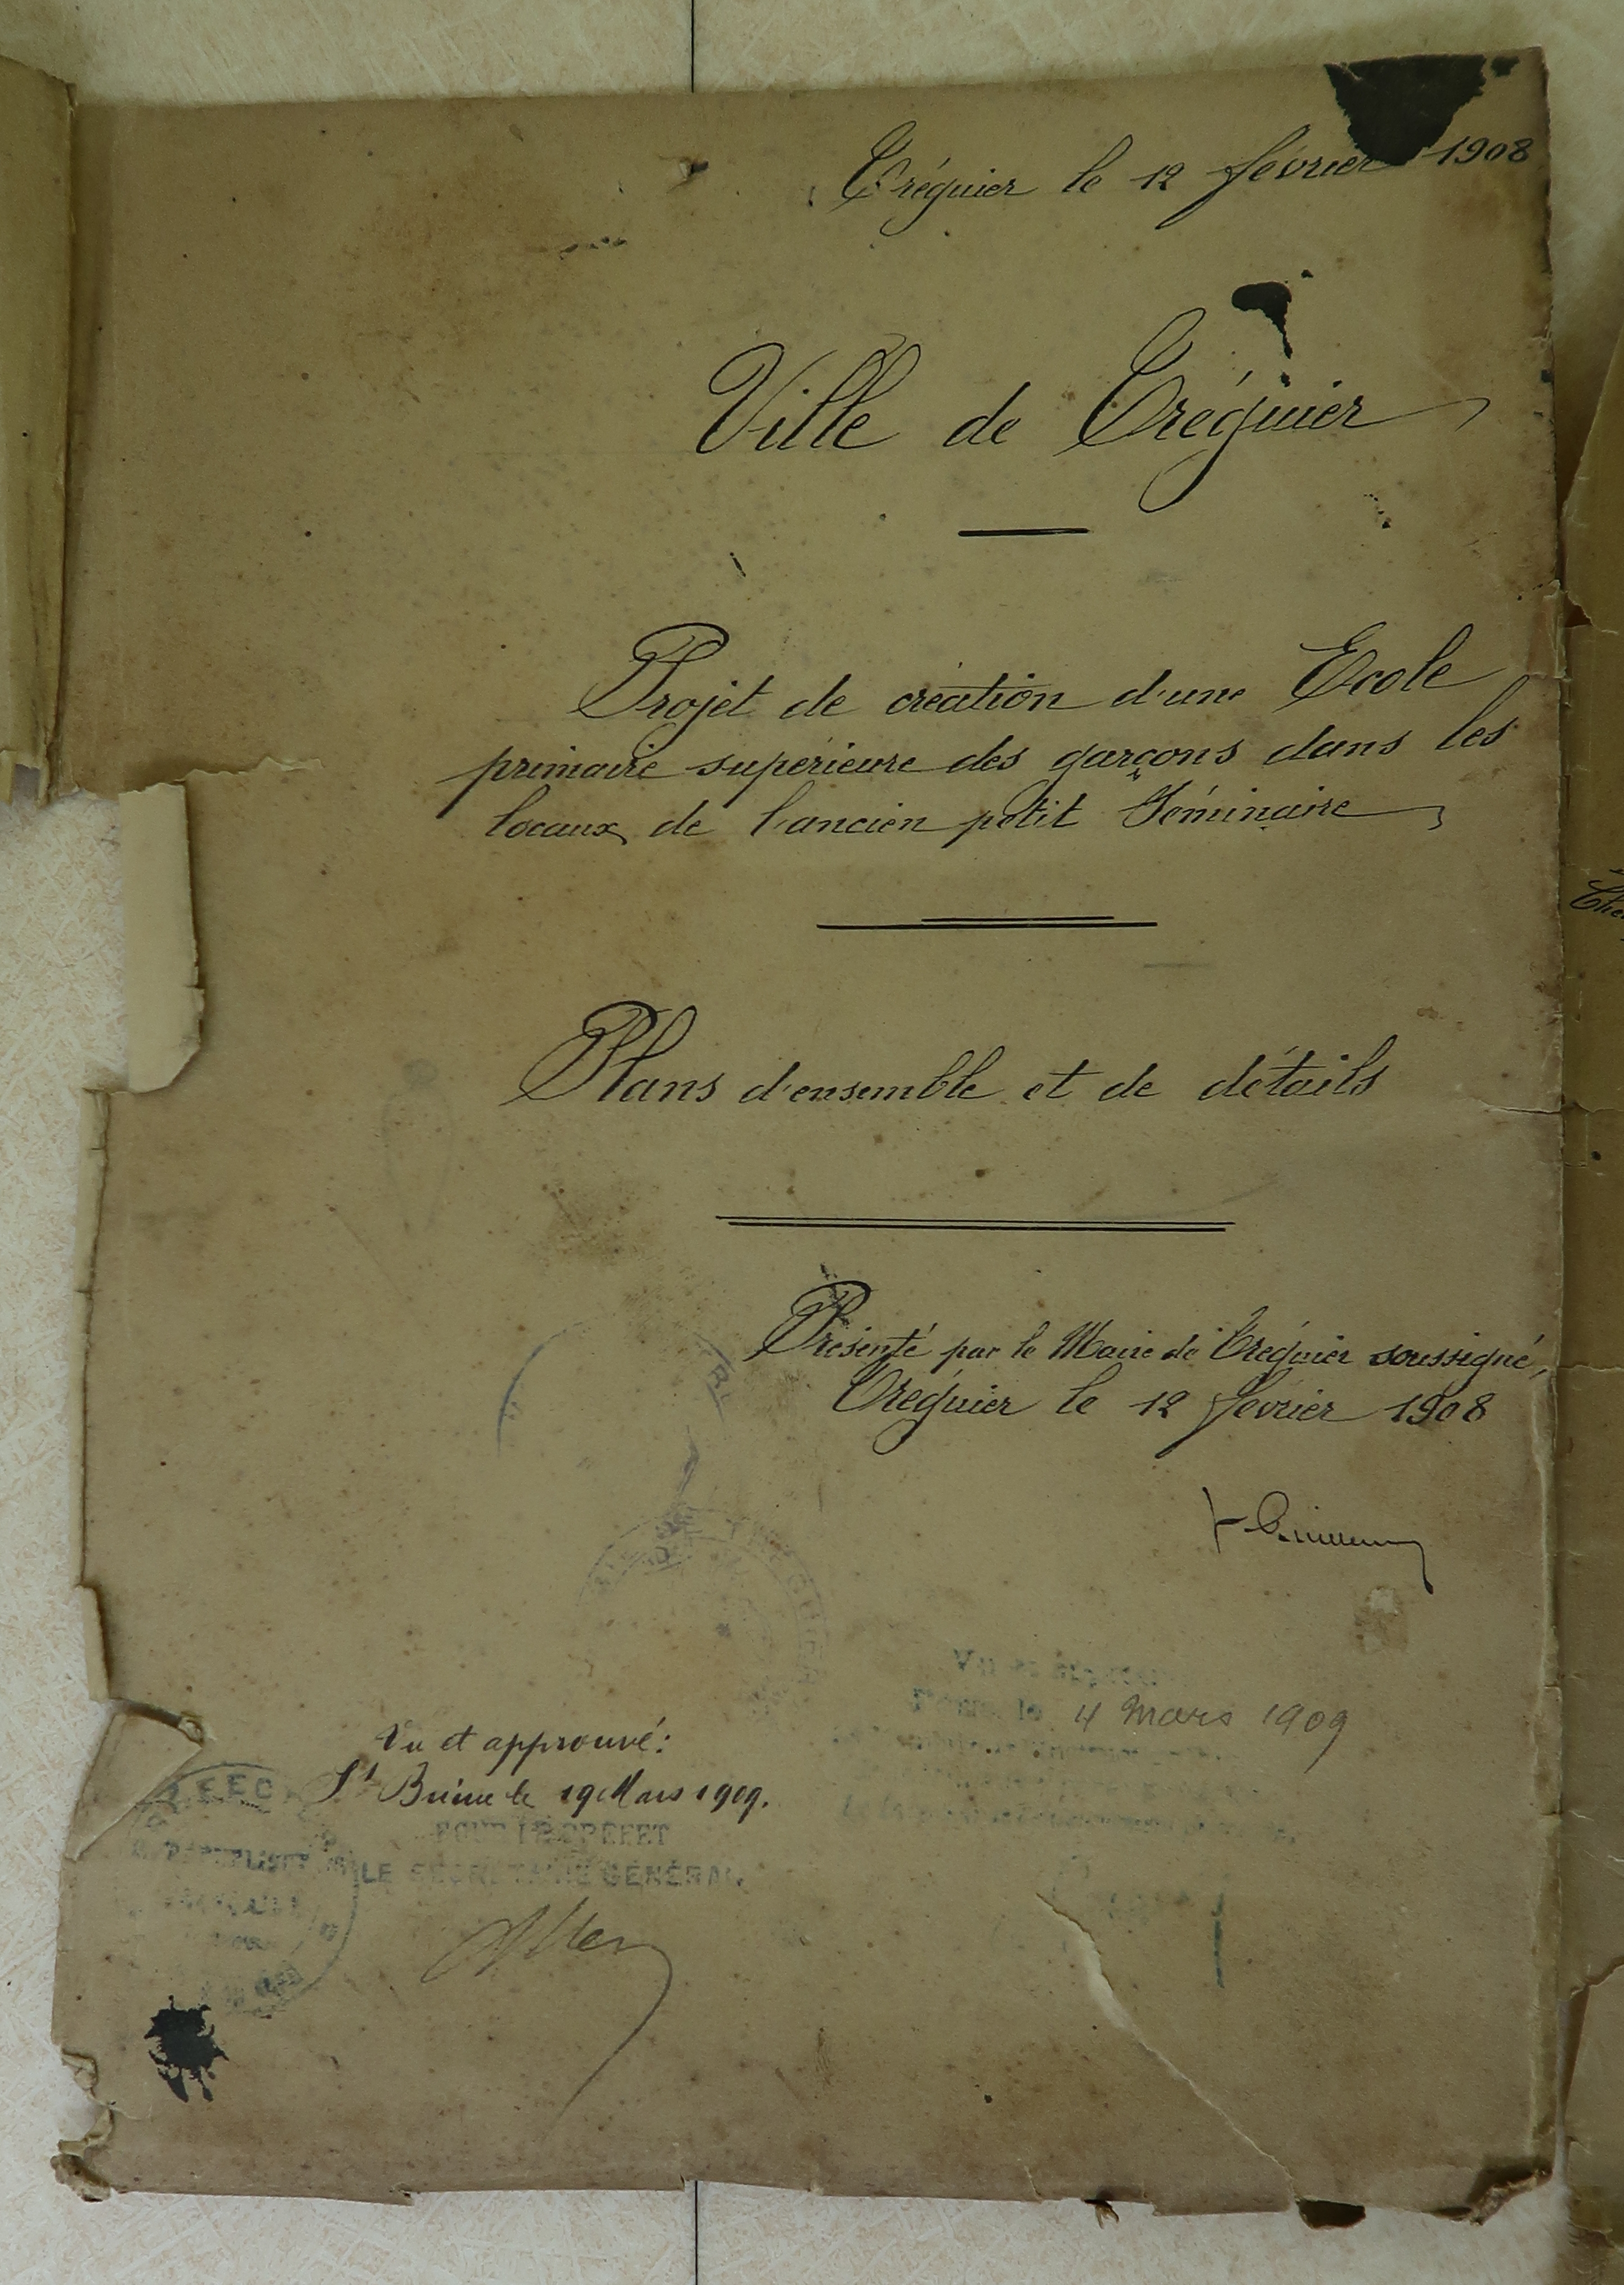 Tréguier le 12 février 1908
Ville de Tréguier
Projet de création d'une Ecole
primaire supérieure des garçons dans les
locaux de l'ancien petit Séminaire
Plans d'ensemble et de détails
Présenté par le Maire de Tréguier soussigné,
Tréguier le 12 février 1908
Vu et
le 4 Mars 1909
Vu et approuvé:
St Brieuc le 19 Mars 1909.
POUR LE PREFET
LE SECRETAIRE GÉNÉRAL